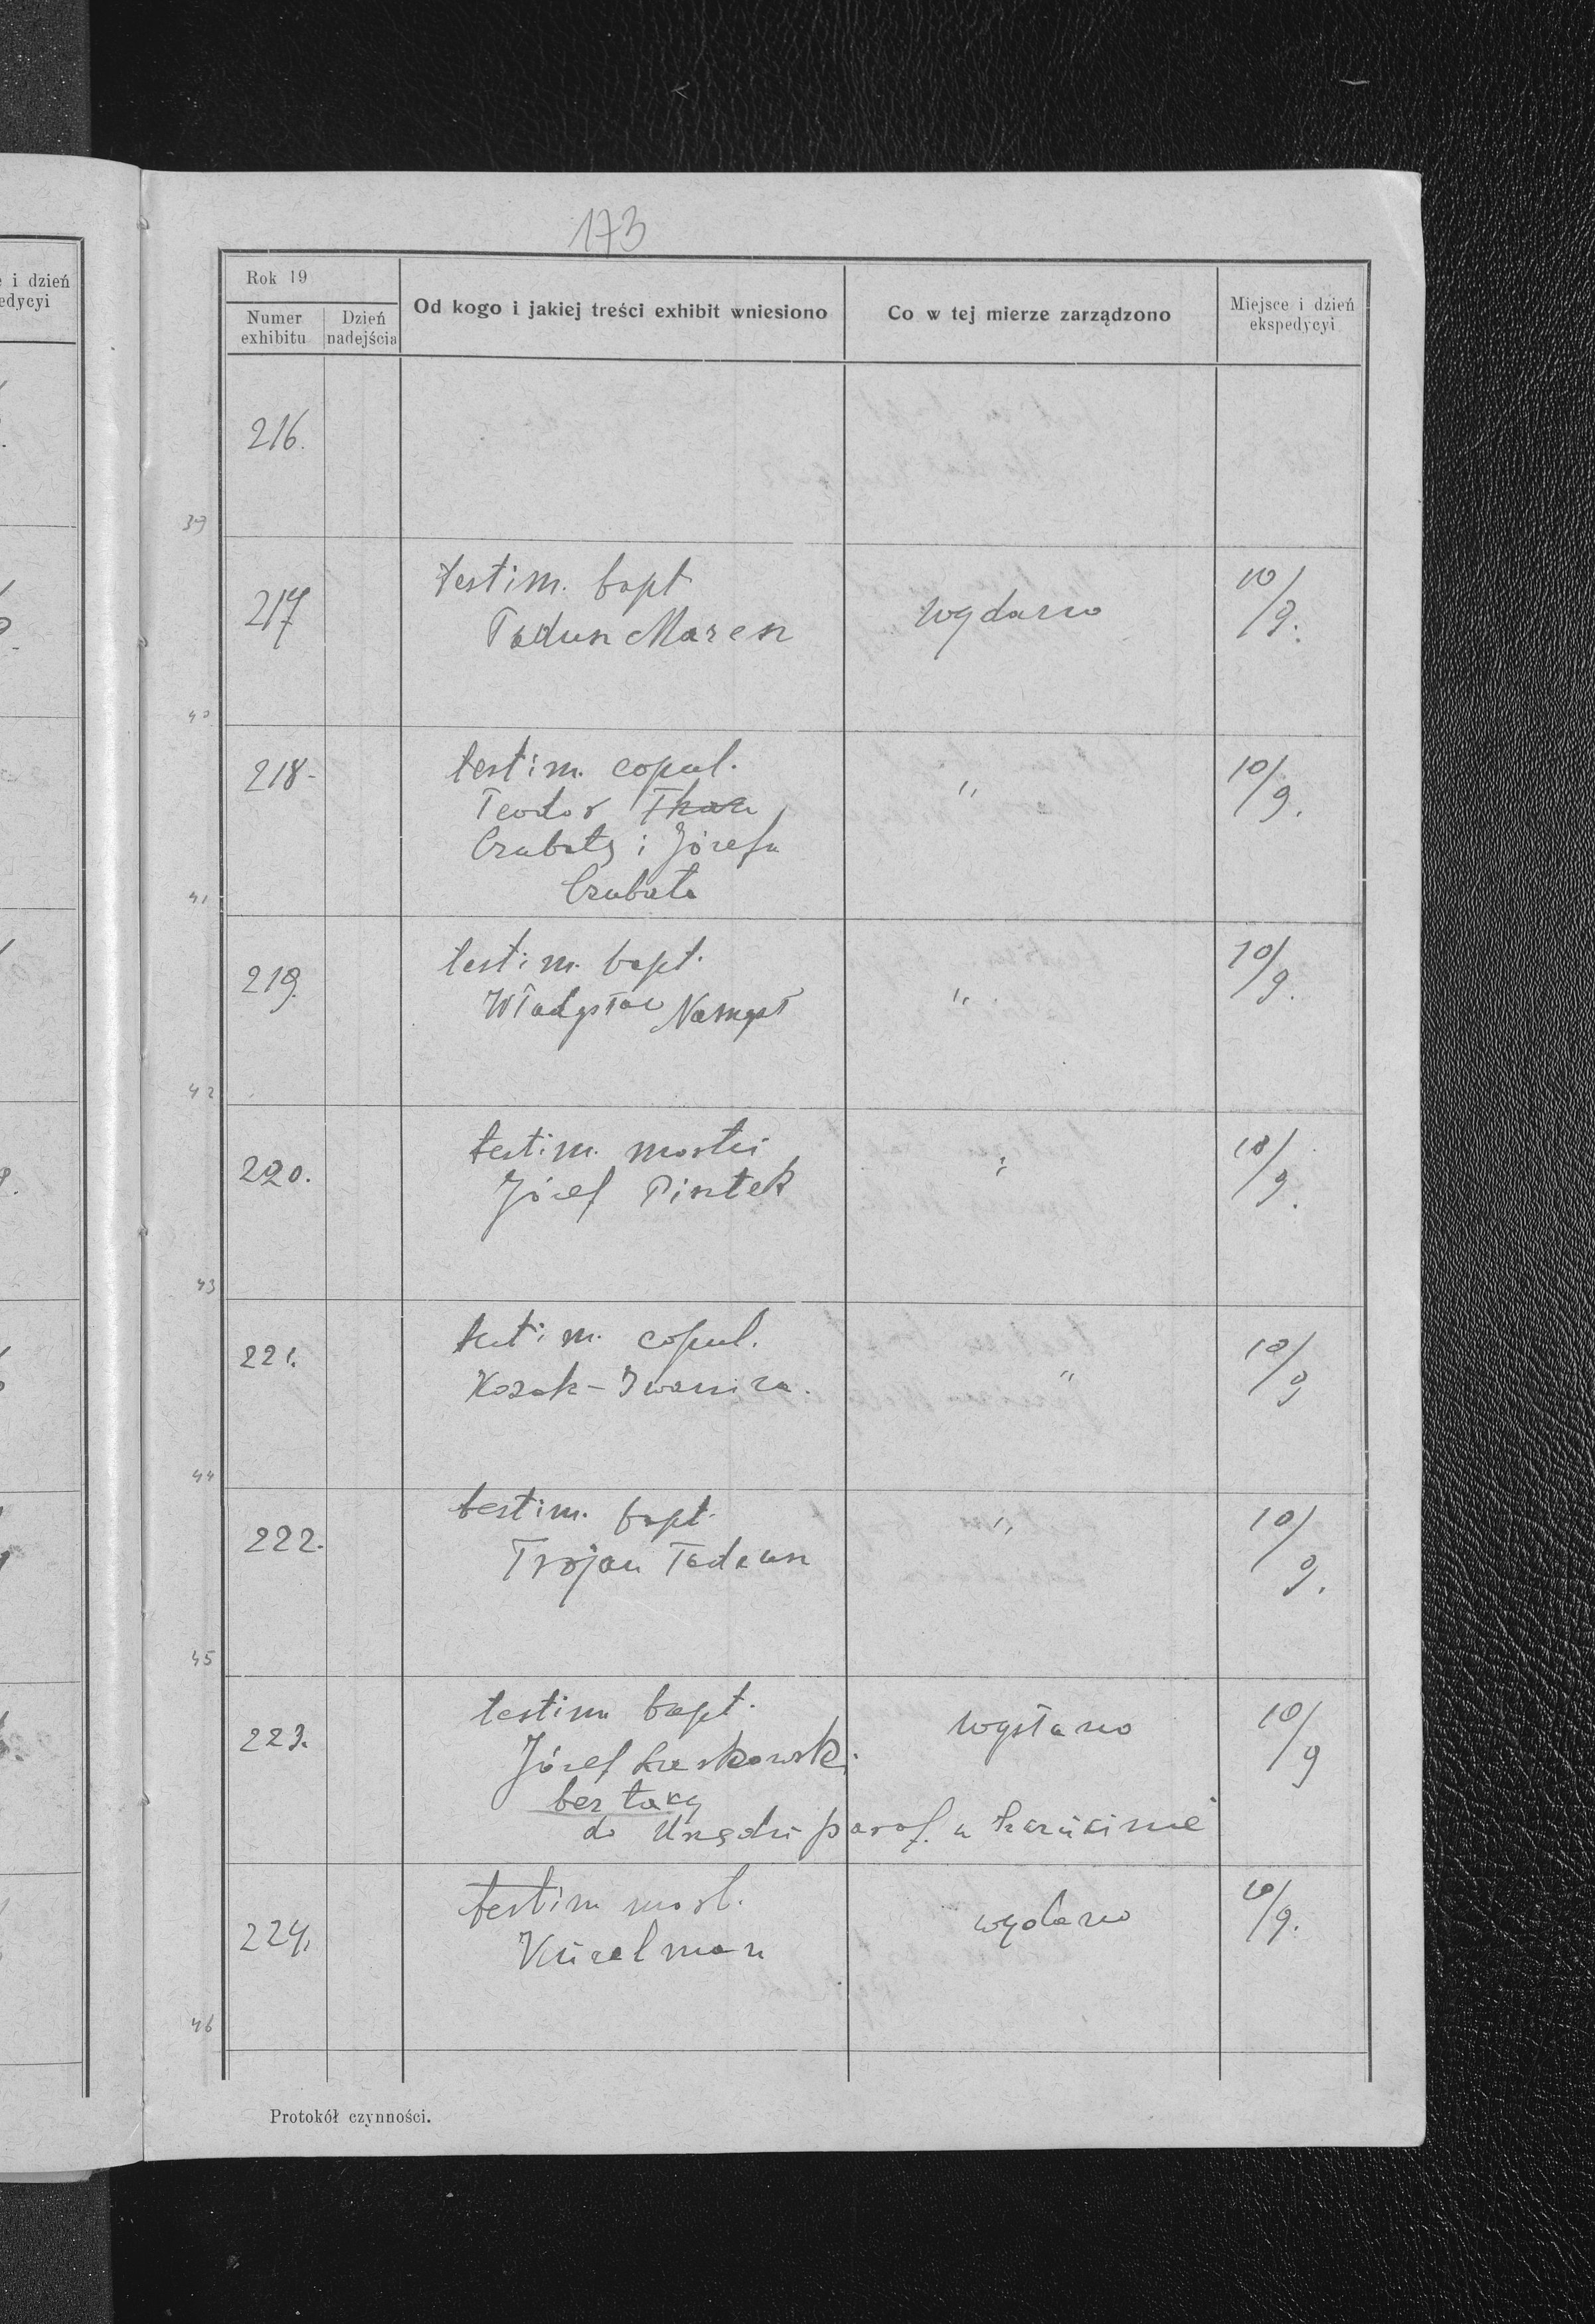 173
i dzień
edycyi
Rok 19
Numer exhibitu
Dzień nadejścia
Od kogo i jakiej treści exhibit wniesiono
Co w tej mierze zarządzono
Miejsce i dzień ekspedycyi
216.
39
217 testim. bapt wydano 10/9.
40
218- testim. copul. " 10/9.
Teodor
Czubaty i Józefa
Czubata
41
219. testim. bapt. " 10/9.
Władysław Namysł
42
220. testim. mortis " 10/9.
Józef Piątek
43
221. testim. copul. " 10/9
Kozak - Iwanica.
44
222. testim. bapt. " 10/9.
Trojan Tadeusz
45
223. testim bapt. wysłano 10/9
Józef
bez taxy
do Urzędu paraf. w
224. testim mort. wydano 10/9.
46
Protokół czynności.